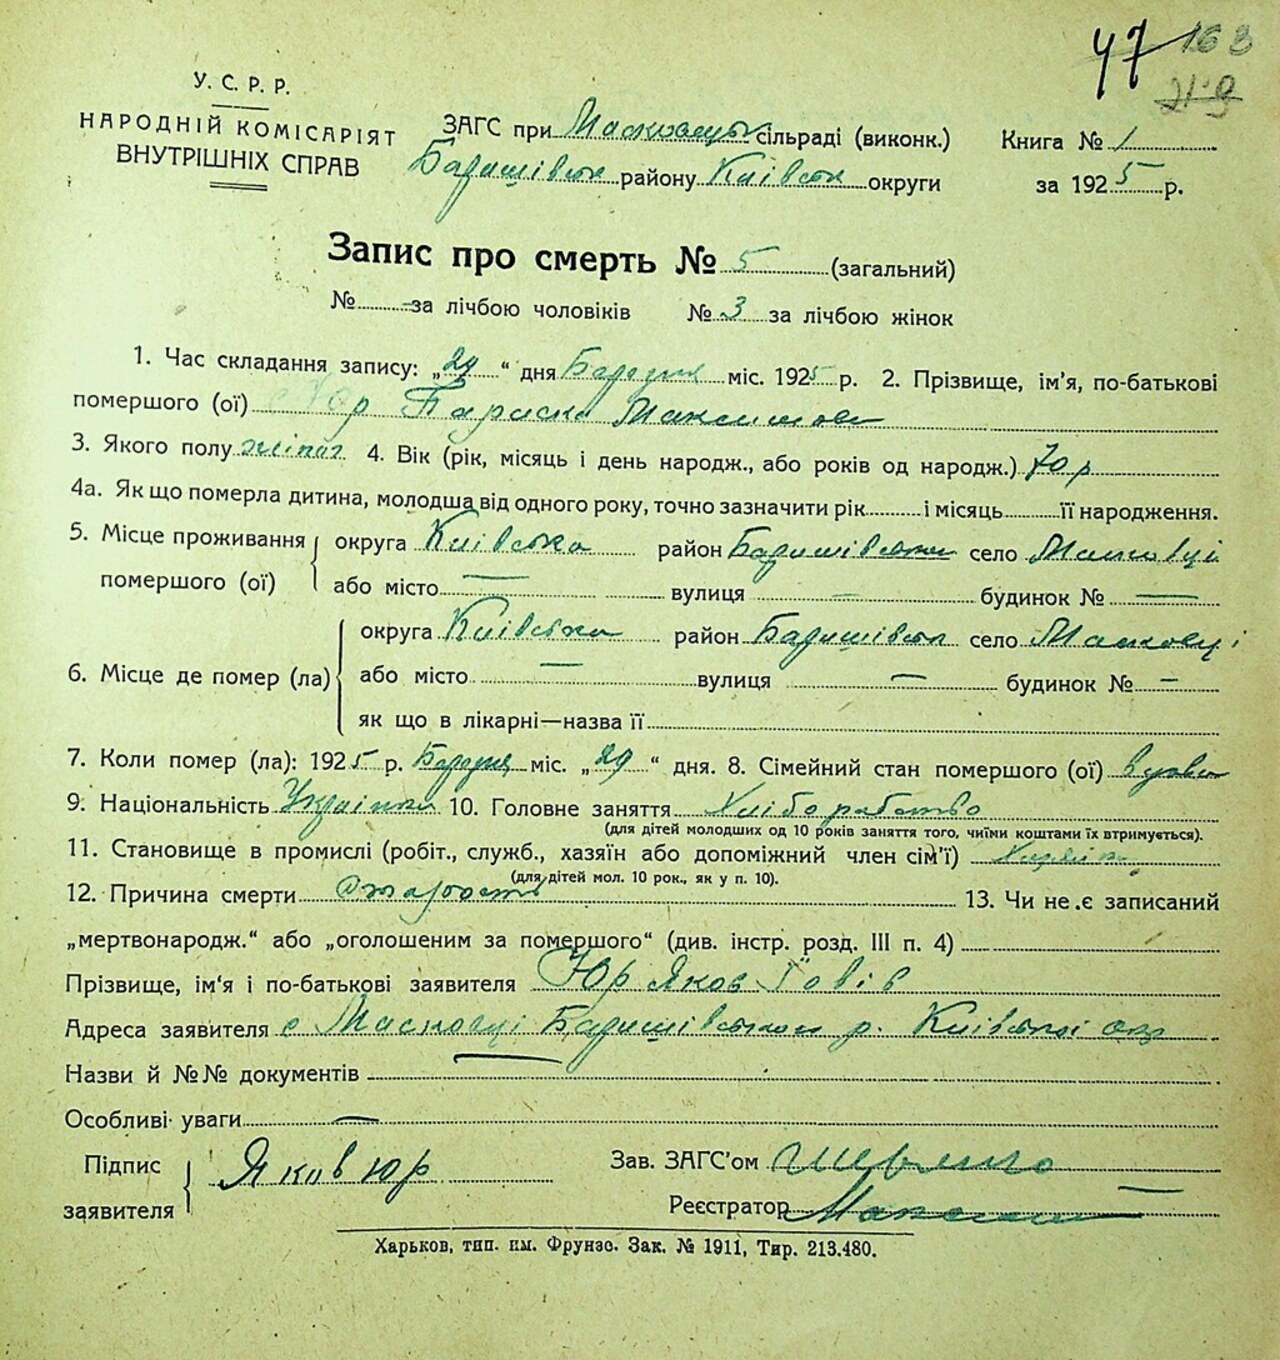 47 163
219
У. С. Р. Р.
НАРОДНІЙ КОМІСАРІЯТ
ВНУТРІШНІХ СПРАВ
ЗАГС при Масковецьк сільраді (виконк.)
Баришівськ району Київськ округи
Книга № 1
за 1925 р.
Запис про смерть № 5 (загальний)
№ — за лічбою чоловіків № 3 за лічбою жінок
1. Час складання запису: „29“ дня Березня міс. 1925 р. 2. Прізвище, ім'я, по-батькові
помершого (ої) Юр Параска Максимов
3. Якого полу жіноч 4. Вік (рік, місяць і день народж., або років од народж.) 70 р
4а. Як що померла дитина, молодша від одного року, точно зазначити рік і місяць її народження.
5. Місце проживання помершого (ої) округа Київська район Баришівськи село Масковці
або місто — вулиця — будинок № —
6. Місце де помер (ла) округа Київська район Баришівськ село Масковці
або місто — вулиця — будинок № —
як що в лікарні—назва її
7. Коли помер (ла): 1925 р. Березня міс. „29“ дня. 8. Сімейний стан помершого (ої) вдова
9. Національність Українка 10. Головне заняття Хліборобство
(для дітей молодших од 10 років заняття того, чиїми коштами їх втримується).
11. Становище в промислі (робіт., служб., хазяїн або допоміжний член сім'ї)
(для дітей мол. 10 рок., як у п. 10).
12. Причина смерти Старость 13. Чи не є записаний
„мертвонародж.“ або „оголошеним за помершого“ (див. інстр. розд. III п. 4)
Прізвище, ім'я і по-батькові заявителя Юр Яков
Адреса заявителя с Масковці Баришівського р. Київської окр
Назви й №№ документів —
Особливі уваги —
Підпис заявителя Яков Юр
Зав. ЗАГС'ом
Реєстратор
Харьков, тип. им. Фрунзе. Зак. № 1911, Тир. 213.480.